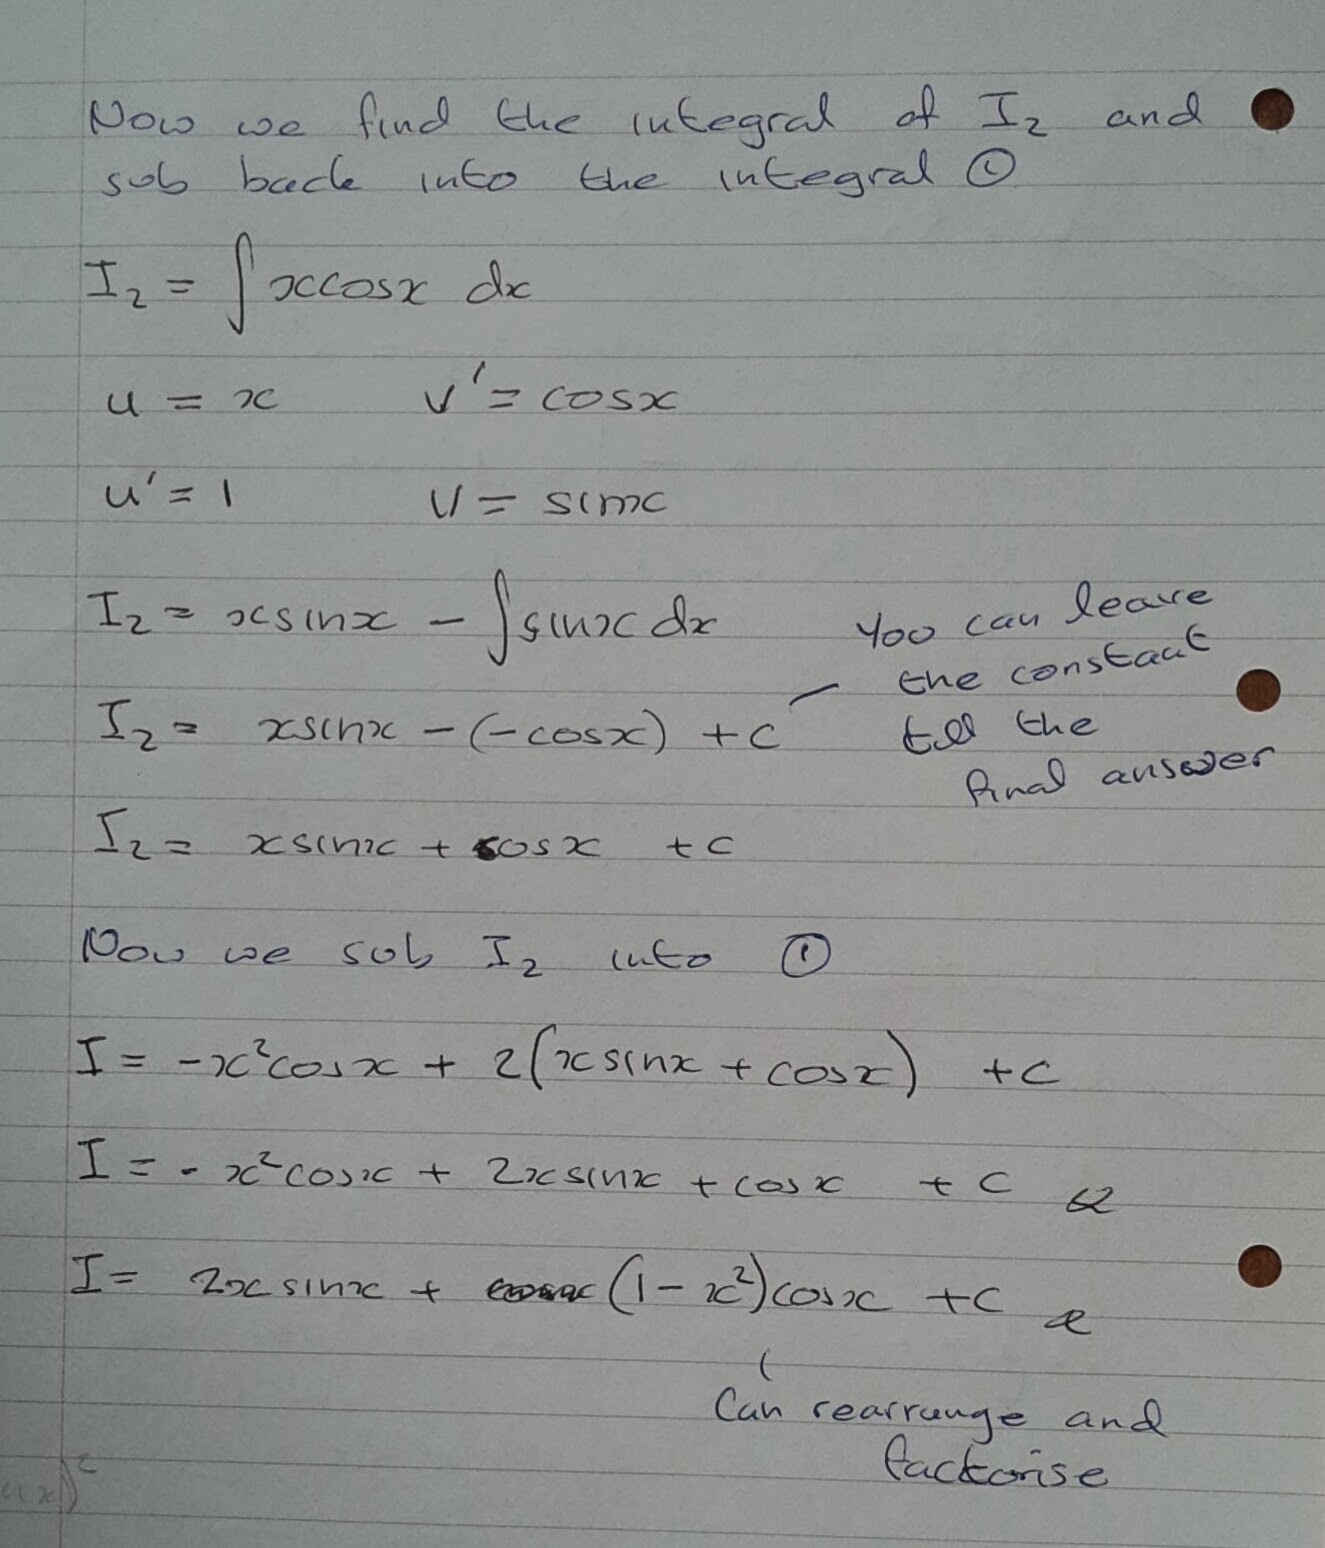 Now we find the integral of I₂ and
sub back into the integral ①
I₂ = ∫xcosx dx
u = x v' = cosx
u' = 1 v = sinx
I₂ = xsinx - ∫sinx dx
You can leave
the constant
till the
final answer
I₂ = xsinx - (-cosx) + c
I₂ = xsinx + cosx + c
Now we sub I₂ into ①
I = -x²cosx + 2(xsinx + cosx) + c
I = - x²cosx + 2xsinx + cosx + c
I = 2xsinx + (1 - x²)cosx + c
Can rearrange and
factorise